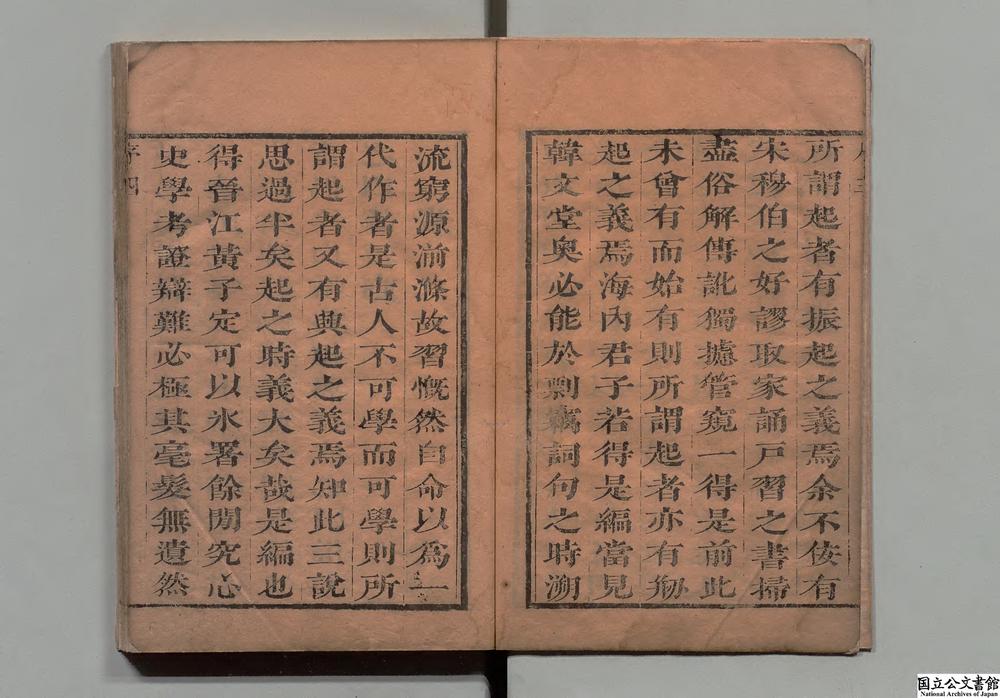 所謂起者有振起之義焉余不佞有
宋穆伯之好謬取家誦戸習之書掃
盡俗解傳訛獨攄管窺一得是前此
未曾有而始有則所謂起者亦有剏
起之義焉海內君子若得是編當見
韓文堂奧必能於剽竊詞句之時溯
流窮源湔滌故習慨然自命以爲一
代作者是古人不可學而可學則所
謂起者又有興起之義焉知此三說
思過半矣起之時義大矣哉是編也
得晉江黃子定可以氷署餘閒究心
史學考證辯難必極其毫髮無遺然
序 四
国立公文書館
National Archives of Japan